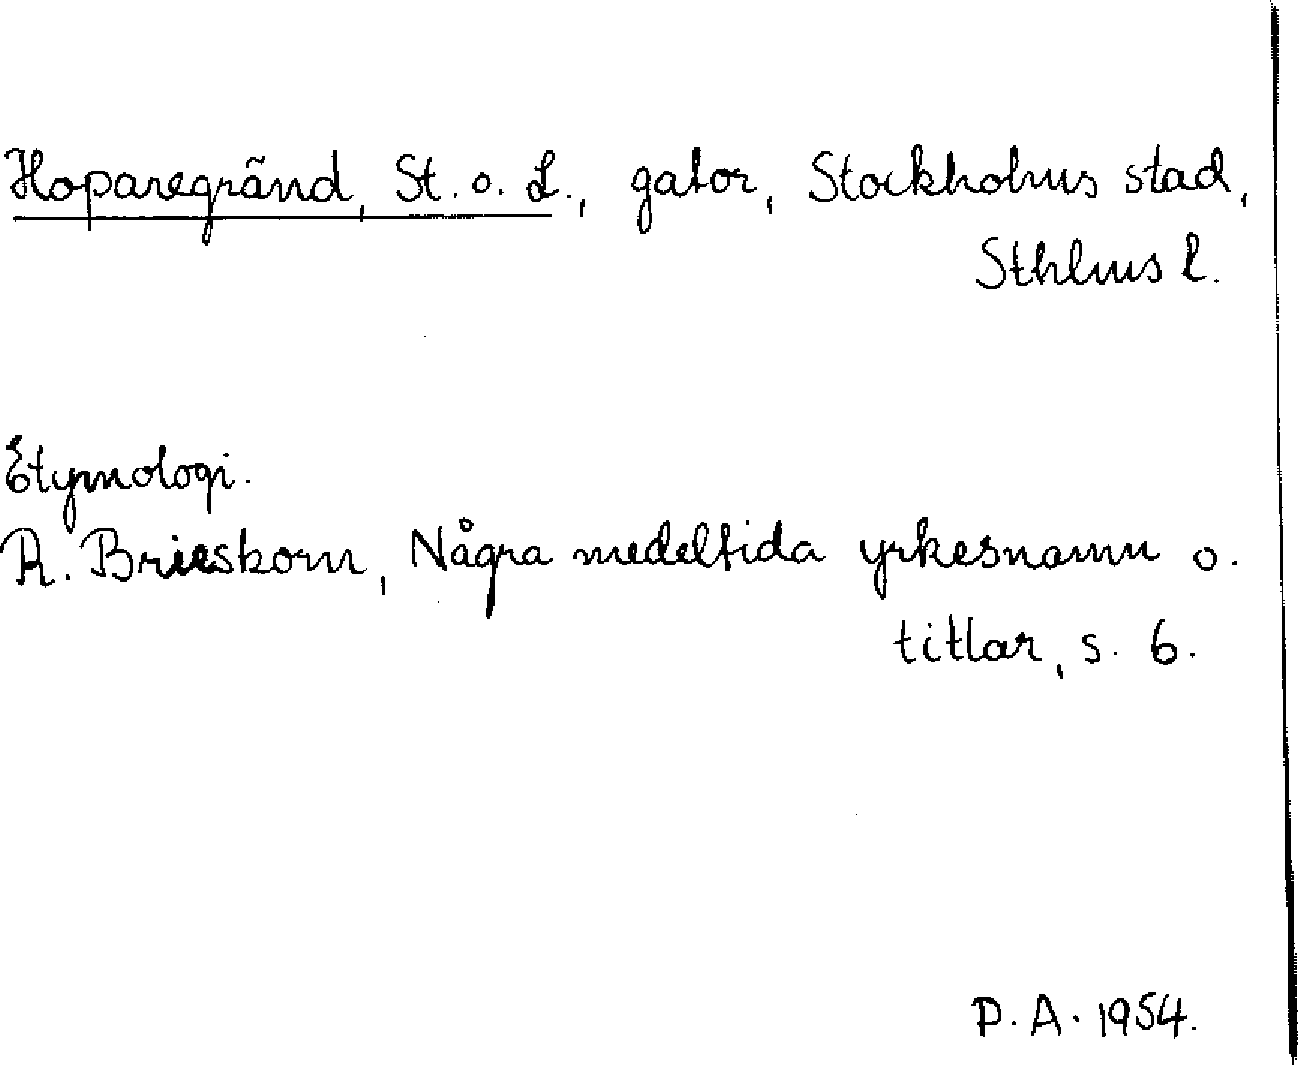 Hoparegränd, St. o. L., gator, Stockholms stad,
Sthlms l.
Etymologi.
R. Brieskorn, Några medeltida yrkesnamn o.
titlar, s. 6.
P. A. 1954.